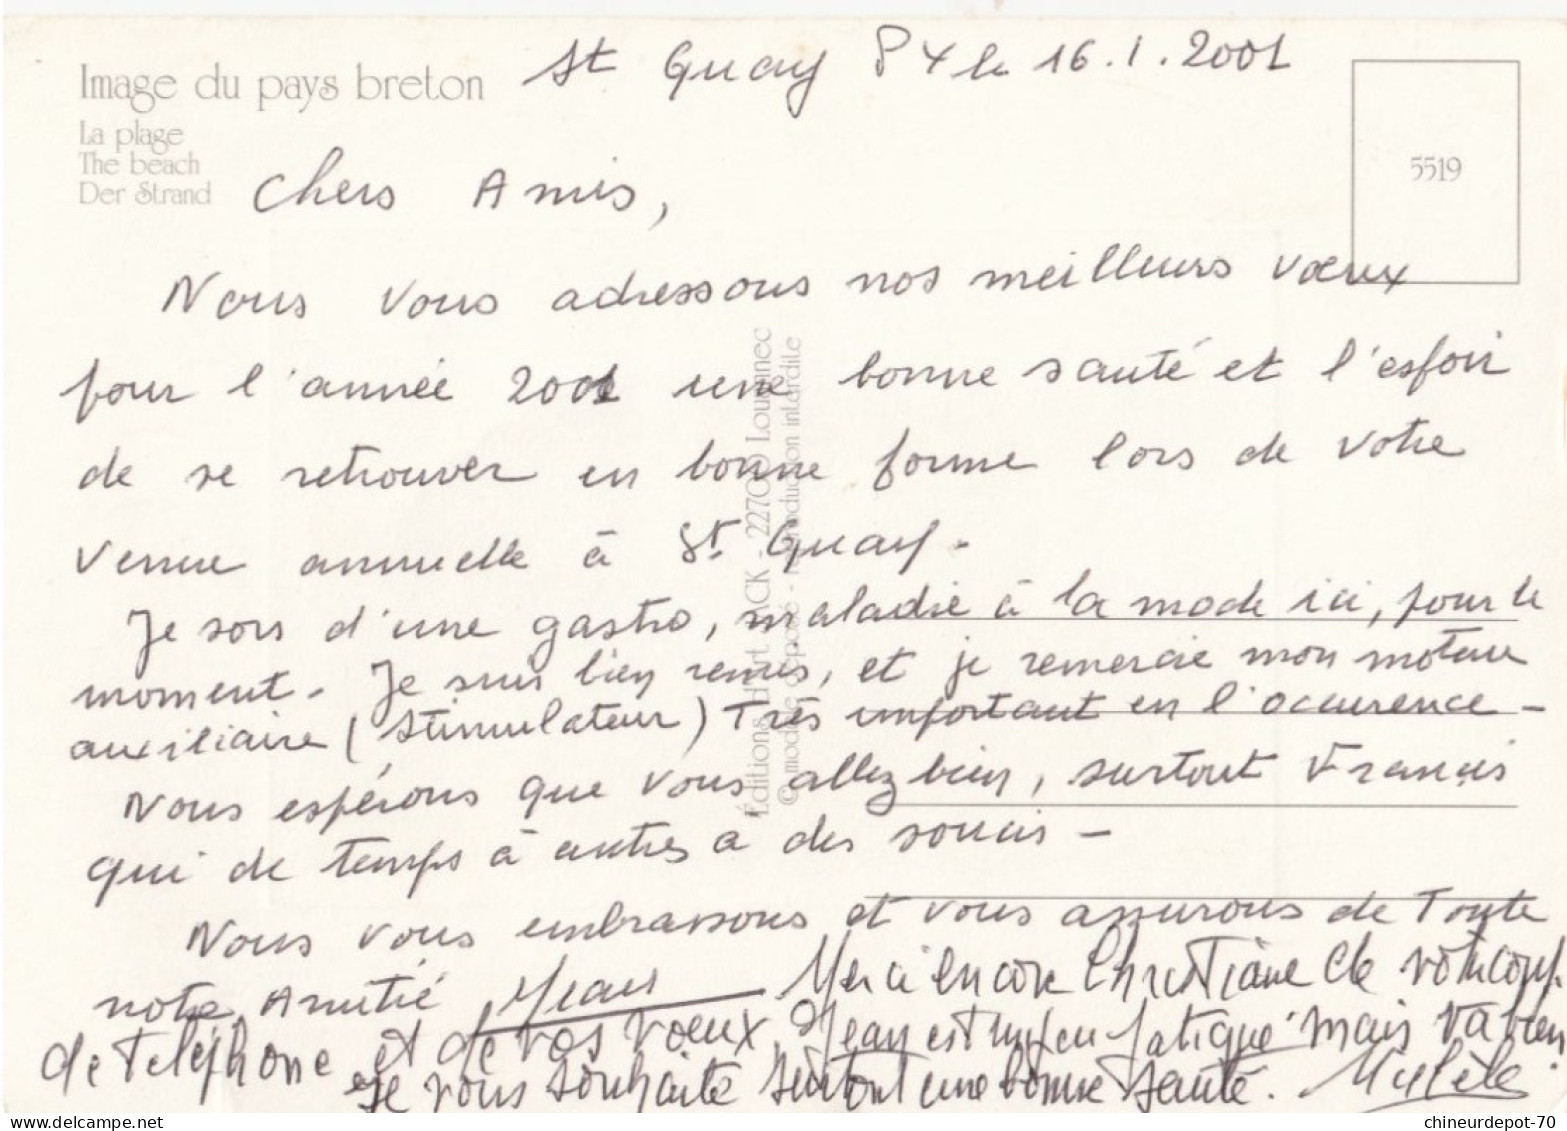 Image du pays breton
La plage
The beach
Der Strand
St Quay P x le 16.1.2001
5519
Chers Amis,
Nous vous adressons nos meilleurs vœux
pour l'année 2001 une bonne santé et l'espoir
de se retrouver en bonne forme lors de votre
venue annuelle à St Quay.
Je sors d'une gastro, maladie à la mode ici, pour le
moment. Je suis bien remis, et je remercie mon moteur
auxiliaire (Stimulateur) Très important en l'occurence -
Nous espérons que vous allez bien, surtout Francis
qui de temps à autres a des soucis -
Nous vous embrassons et vous assurons de Toute
notre Amitié Jean Merci encore Christiane de votre coup
de téléphone et de vos vœux. Jean est un peu fatigué mais va bien
Je vous souhaite surtout une bonne santé. Michèle
Éditions d'Art JACK - 22700 Louannec
© modèle déposé - reproduction interdite
chineurdepot-70